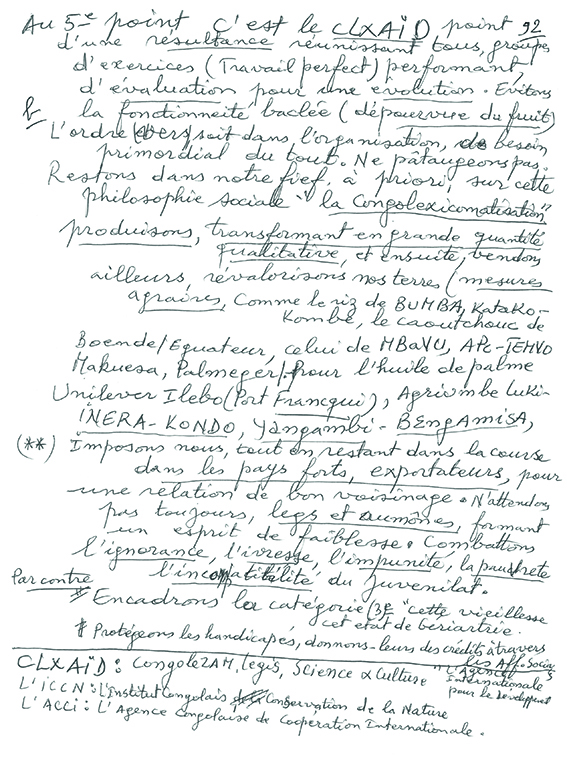 Au 5e point C'est le CLXAÏD point 92
d'une résultance réunissant tous, groupes
d'exercices (Travail perfect) performant,
d'évaluation pour une évolution. Evitons
la fonctionneité baclée (dépourvue du fruit)
L'ordre soit dans l'organisation, de besoin
primordial du tout. Ne pataugeons pas,
Restons dans notre fief, à priori, sur cette
philosophie sociale "la Congolexicomatisation"
produisons, transformant en grande quantité
qualitative, et ensuite, vendons
ailleurs, révalorisons nos terres (mesures
agraires, Comme le riz de BUMBA, Katako-
Kombe, le caoutchouc de
Boende/Equateur, celui de MBaVU,
Makuesa, Palmeger/. pour l'huile de palme
Unilever Ilebo (Port Francqui), Luki-
INERA-KONDO, Yangambi-BENGAMISA,
(**) Imposons nous, tout en restant dans la course
dans les pays forts, exportateurs, pour
une relation de bon voisinage. N'attendons
pas toujours, legs et aumônes, formant
un esprit de faiblesse. Combattons
l'ignorance, l'ivresse, l'impunité, la
du Juvenilat.
Par contre
# Encadrons la catégorie (3e "cette vieillesse
cet état de Gériatrie.
# Protégeons les handicapés, donnons-leurs des crédits àtravers
les Aff. Sociales
CLXAÏD: CONGOLEXAM, Legis, Science & Culture
L'Agence Internationale
pour le Développmet
L'iCCN: L'Institut Congolais Conservation de la Nature
L'ACCi: L'Agence Congolaise de Coopération Internationale.